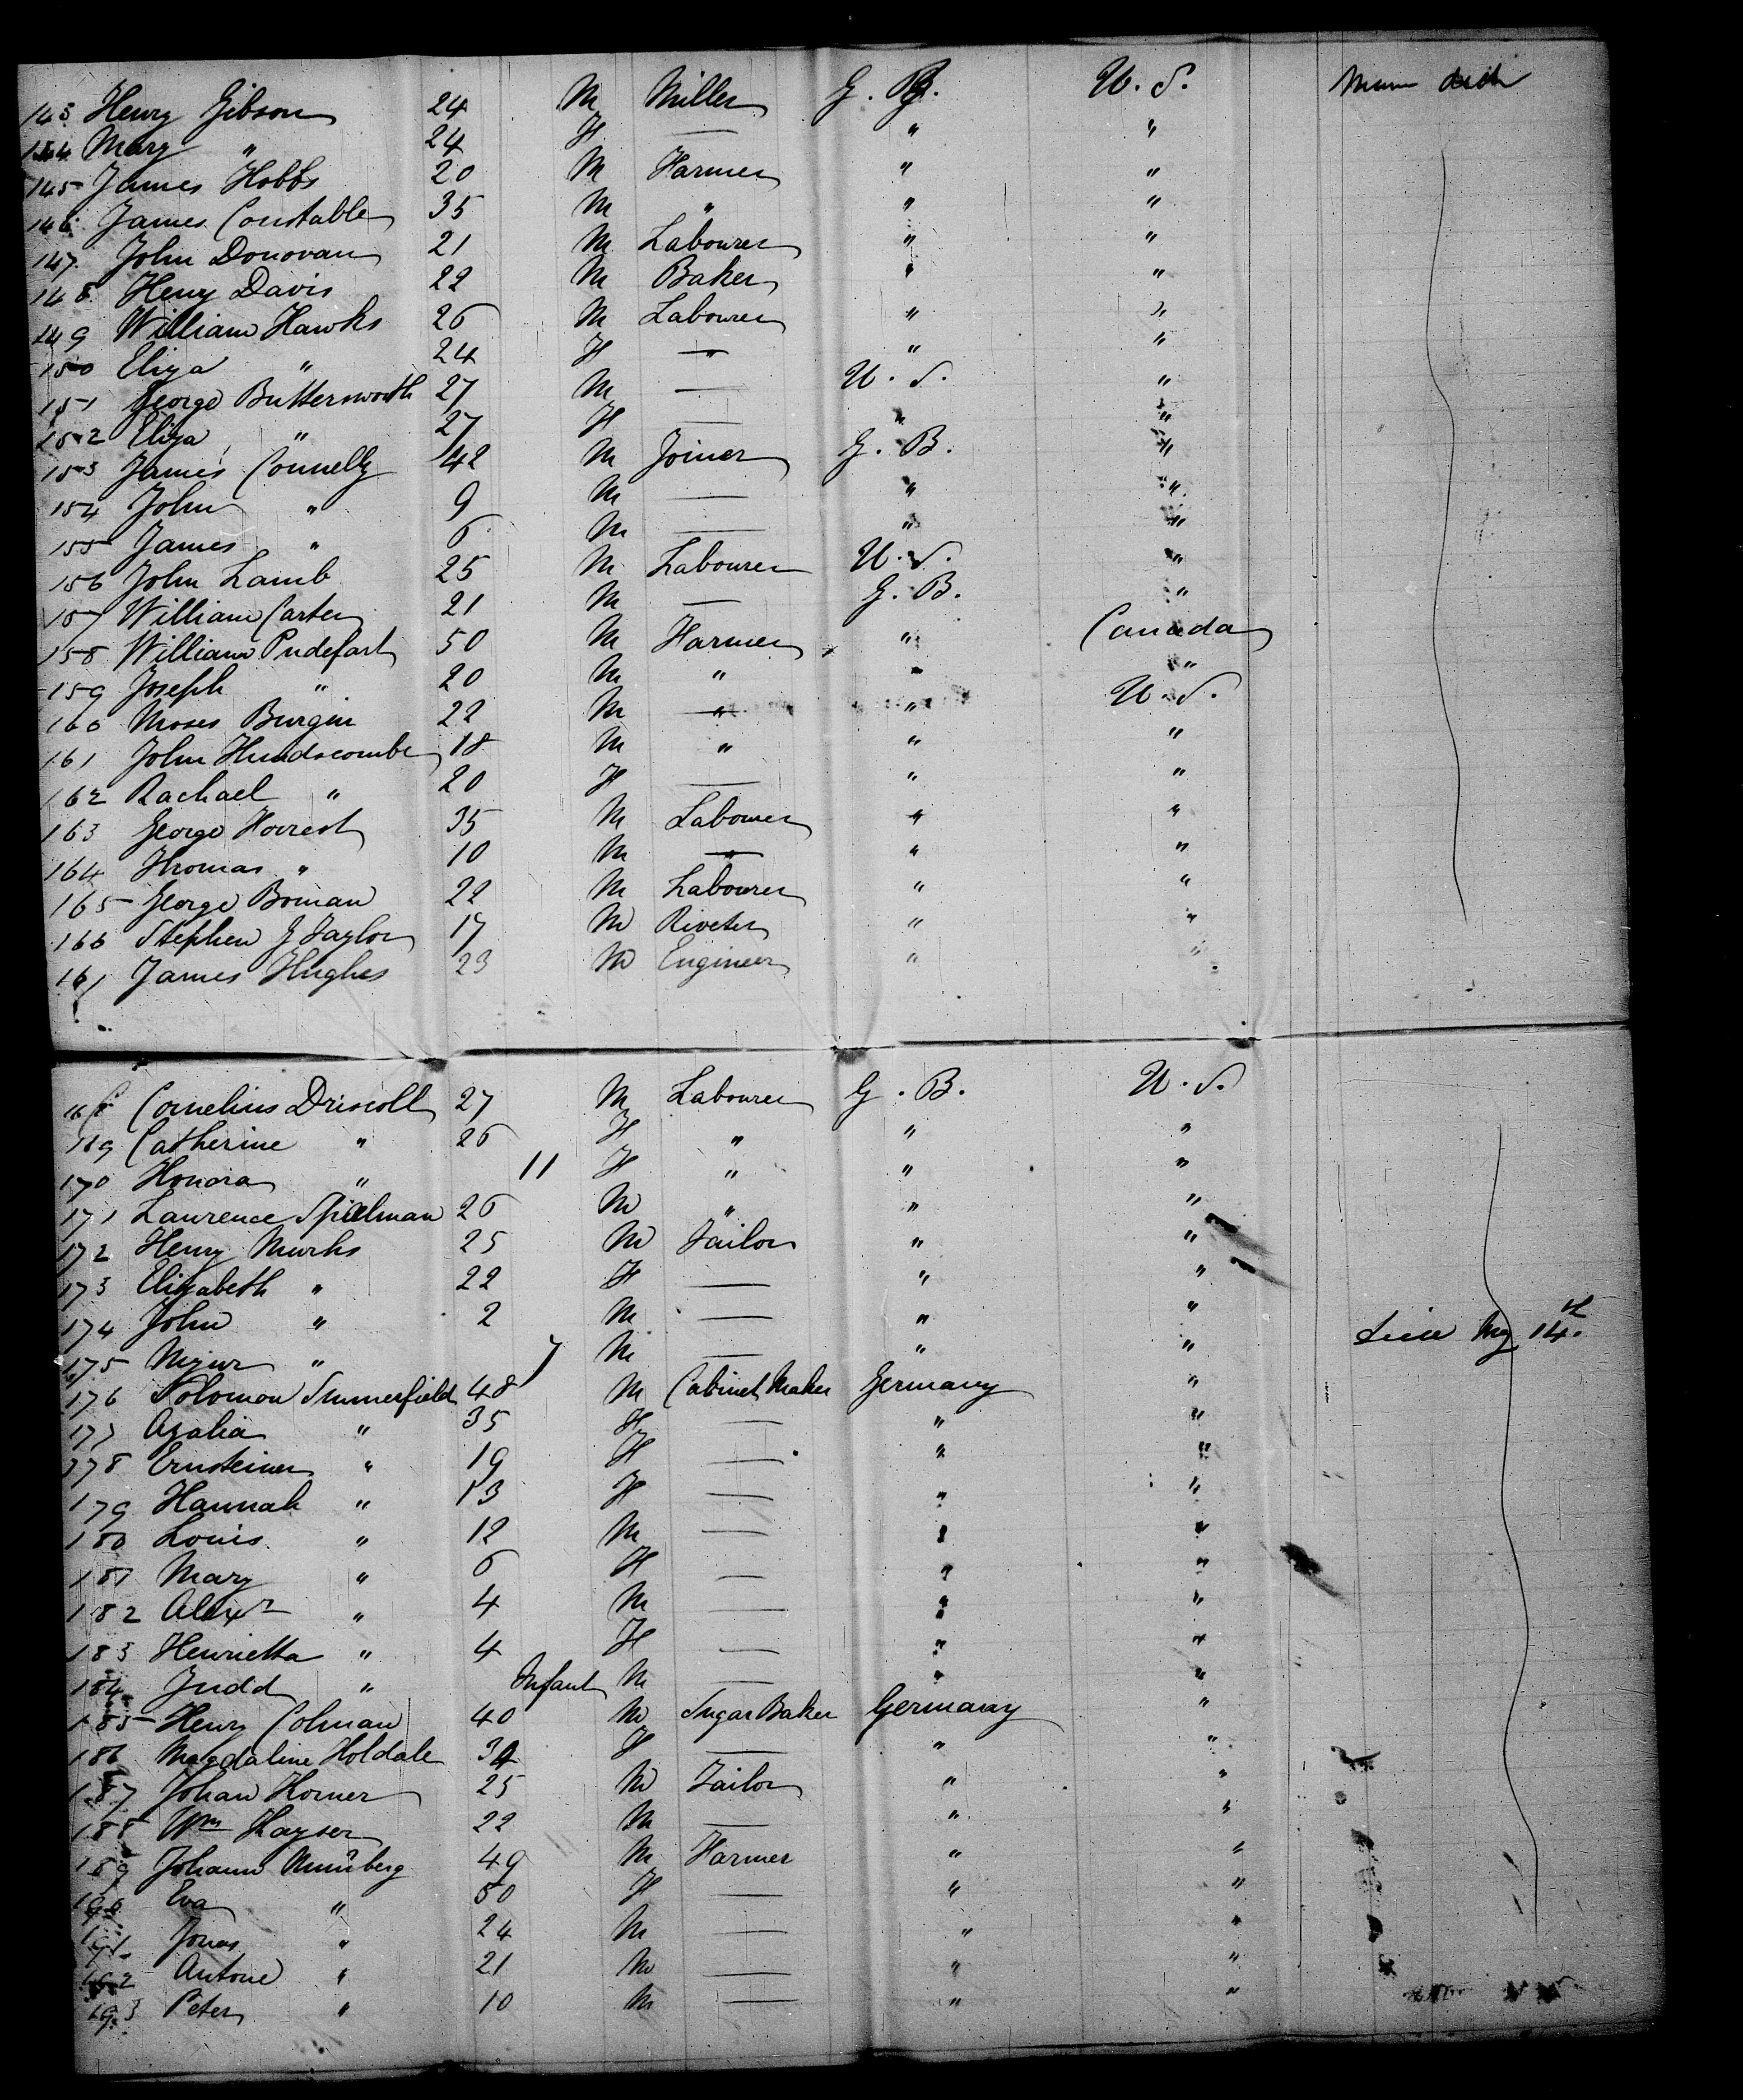 143 Henry Gibson 24 M Miller G. B. U. S. None died
144 Mary " 24 F — " "
145 James Hobbs 20 M Farmer " "
146 James Constable 35 M " " "
147 John Donovan 21 M Labourer " "
148 Henry Davis 22 M Baker " "
149 William Hawks 26 M Labourer " "
150 Eliza " 24 F — " "
151 George Buttersworth 27 M — U. S. "
152 Eliza " 27 F — " "
153 James Connelly 42 M Joiner G. B. "
154 John " 9 M — " "
155 James " 6 M — " "
156 John Lamb 25 M Labourer U. S. "
157 William Carter 21 M — G. B. "
158 William Pudefart 50 M Farmer " Canada
159 Joseph " 20 M " " "
160 Moses Burgin 22 M " " U. S.
161 John Hendscombe 18 M " " "
162 Rachael " 20 F — " "
163 George Forrest 35 M Labourer " "
164 Thomas " 10 M — " "
165 George Boman 22 M Labourer " "
166 Stephen G Taylor 17 M Riveter " "
167 James Hughes 23 M Engineer " "
168 Cornelius Driscoll 27 M Labourer G. B. U. S.
169 Catherine " 26 F " " "
170 Honora " 11 F " " "
171 Laurence Spielman 26 M " " "
172 Henry Murks 25 M Tailor " "
173 Elizabeth " 22 F — " "
174 John " 2 M — " "
175 " 7 M — " " died 14th
176 Solomon Summerfield 48 M Cabinet Maker Germany "
177 Azalia " 35 F — " "
178 Ernsteiner " 19 F — " "
179 Hannah " 13 F — " "
180 Louis " 12 M — " "
181 Mary " 6 F — " "
182 Alexr " 4 M — " "
183 Henrietta " 4 F — " "
184 Judd " Infant M — " "
185 Henry Colman 40 M Sugar Baker Germany "
186 Magdaline Holdale 34 F — " "
187 Johan Korner 25 M Tailor " "
188 Wm Kayser 22 M — " "
189 Johann Munberg 49 M Farmer " "
190 Eva " 50 F — " "
191 Jonas " 24 M — " "
192 Antone " 21 M — " "
193 Peter " 10 M — " "